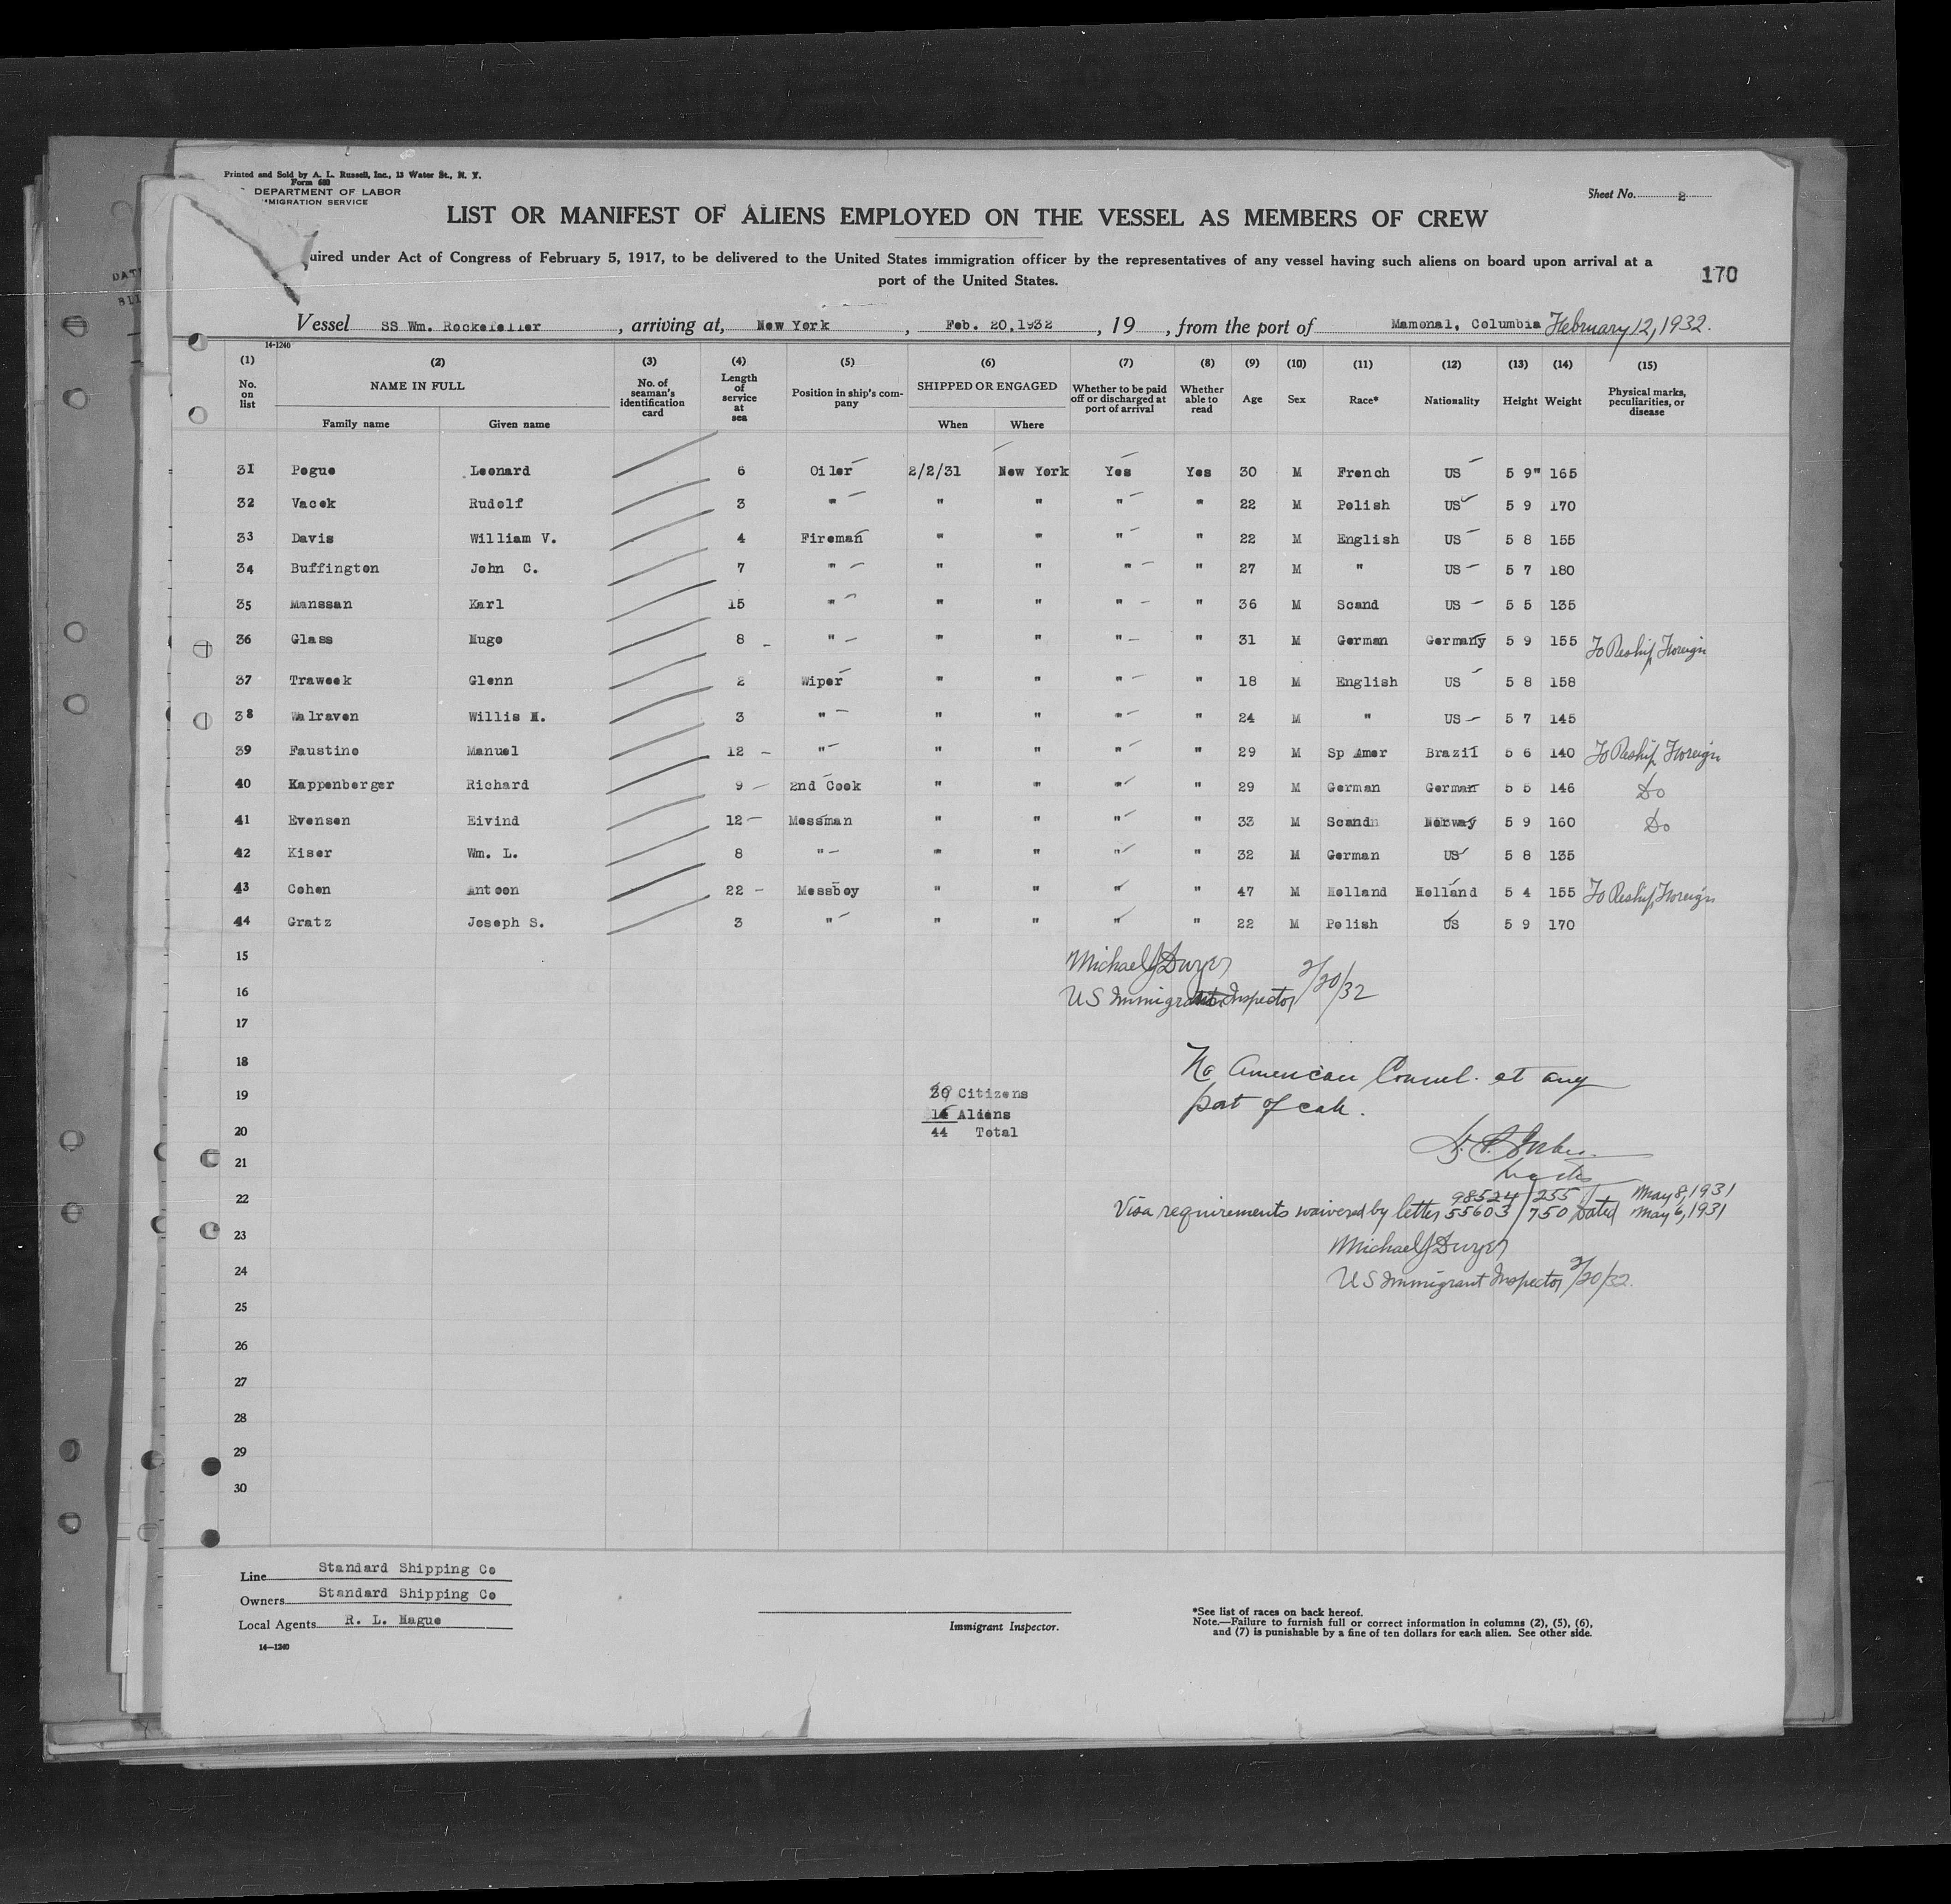 Printed and Sold by A. L. Russell, Inc., 13 Water St., N. Y.
Form 680
DEPARTMENT OF LABOR
IMMIGRATION SERVICE
Sheet No. 2
LIST OR MANIFEST OF ALIENS EMPLOYED ON THE VESSEL AS MEMBERS OF CREW
uired under Act of Congress of February 5, 1917, to be delivered to the United States immigration officer by the representatives of any vessel having such aliens on board upon arrival at a
port of the United States.
170
Vessel SS Wm. Rockefeller , arriving at, New York , Feb. 20,1932 , 19 , from the port of Mamonal, Columbia February 12, 1932.
14-1240
(1) (2) (3) (4) (5) (6) (7) (8) (9) (10) (11) (12) (13) (14) (15)
No. on list NAME IN FULL No. of seaman's identification card Length of service at sea Position in ship's company SHIPPED OR ENGAGED Whether to be paid off or discharged at port of arrival Whether able to read Age Sex Race* Nationality Height Weight Physical marks, peculiarities, or disease
Family name Given name When Where
31 Pogue Leonard 6 Oiler 2/2/31 New York Yes Yes 30 M French US 5 9" 165
32 Vacek Rudolf 3 " " " " " 22 M Polish US 5 9 170
33 Davis William V. 4 Fireman " " " " 22 M English US 5 8 155
34 Buffington John C. 7 " " " " " 27 M " US 5 7 180
35 Manssan Karl 15 " " " " " 36 M Scand US 5 5 135
36 Glass Hugo 8 " " " " " 31 M German Germany 5 9 155 To Reship Foreign
37 Traweek Glenn 2 Wiper " " " " 18 M English US 5 8 158
38 Walraven Willis H. 3 " " " " " 24 M " US 5 7 145
39 Faustino Manuel 12 " " " " " 29 M Sp Amer Brazil 5 6 140 To Reship Foreign
40 Kappenberger Richard 9 2nd Cook " " " " 29 M German German 5 5 146 Do
41 Evensen Eivind 12 Messman " " " " 33 M Scand Norway 5 9 160 Do
42 Kiser Wm. L. 8 " " " " " 32 M German US 5 8 135
43 Cohen Antoon 22 Messboy " " " " 47 M Holland Holland 5 4 155 To Reship Foreign
44 Gratz Joseph S. 3 " " " " " 22 M Polish US 5 9 170
15
Michael J Dwyer
16
US Immigrant Inspector 2/20/32
17
18
No American Consul at any
19
Citizens
port of call.
Aliens
20
44 Total
21
22
98524/255 May 8, 1931
Visa requirements waivered by letter 55603/750 Dated May 6, 1931
23
Michael J Dwyer
24
US Immigrant Inspector 2/20/32.
25
26
27
28
29
30
Line Standard Shipping Co
Owners Standard Shipping Co
Local Agents R. L. Hague
14-1240
Immigrant Inspector.
*See list of races on back hereof.
Note.—Failure to furnish full or correct information in columns (2), (5), (6),
and (7) is punishable by a fine of ten dollars for each alien. See other side.